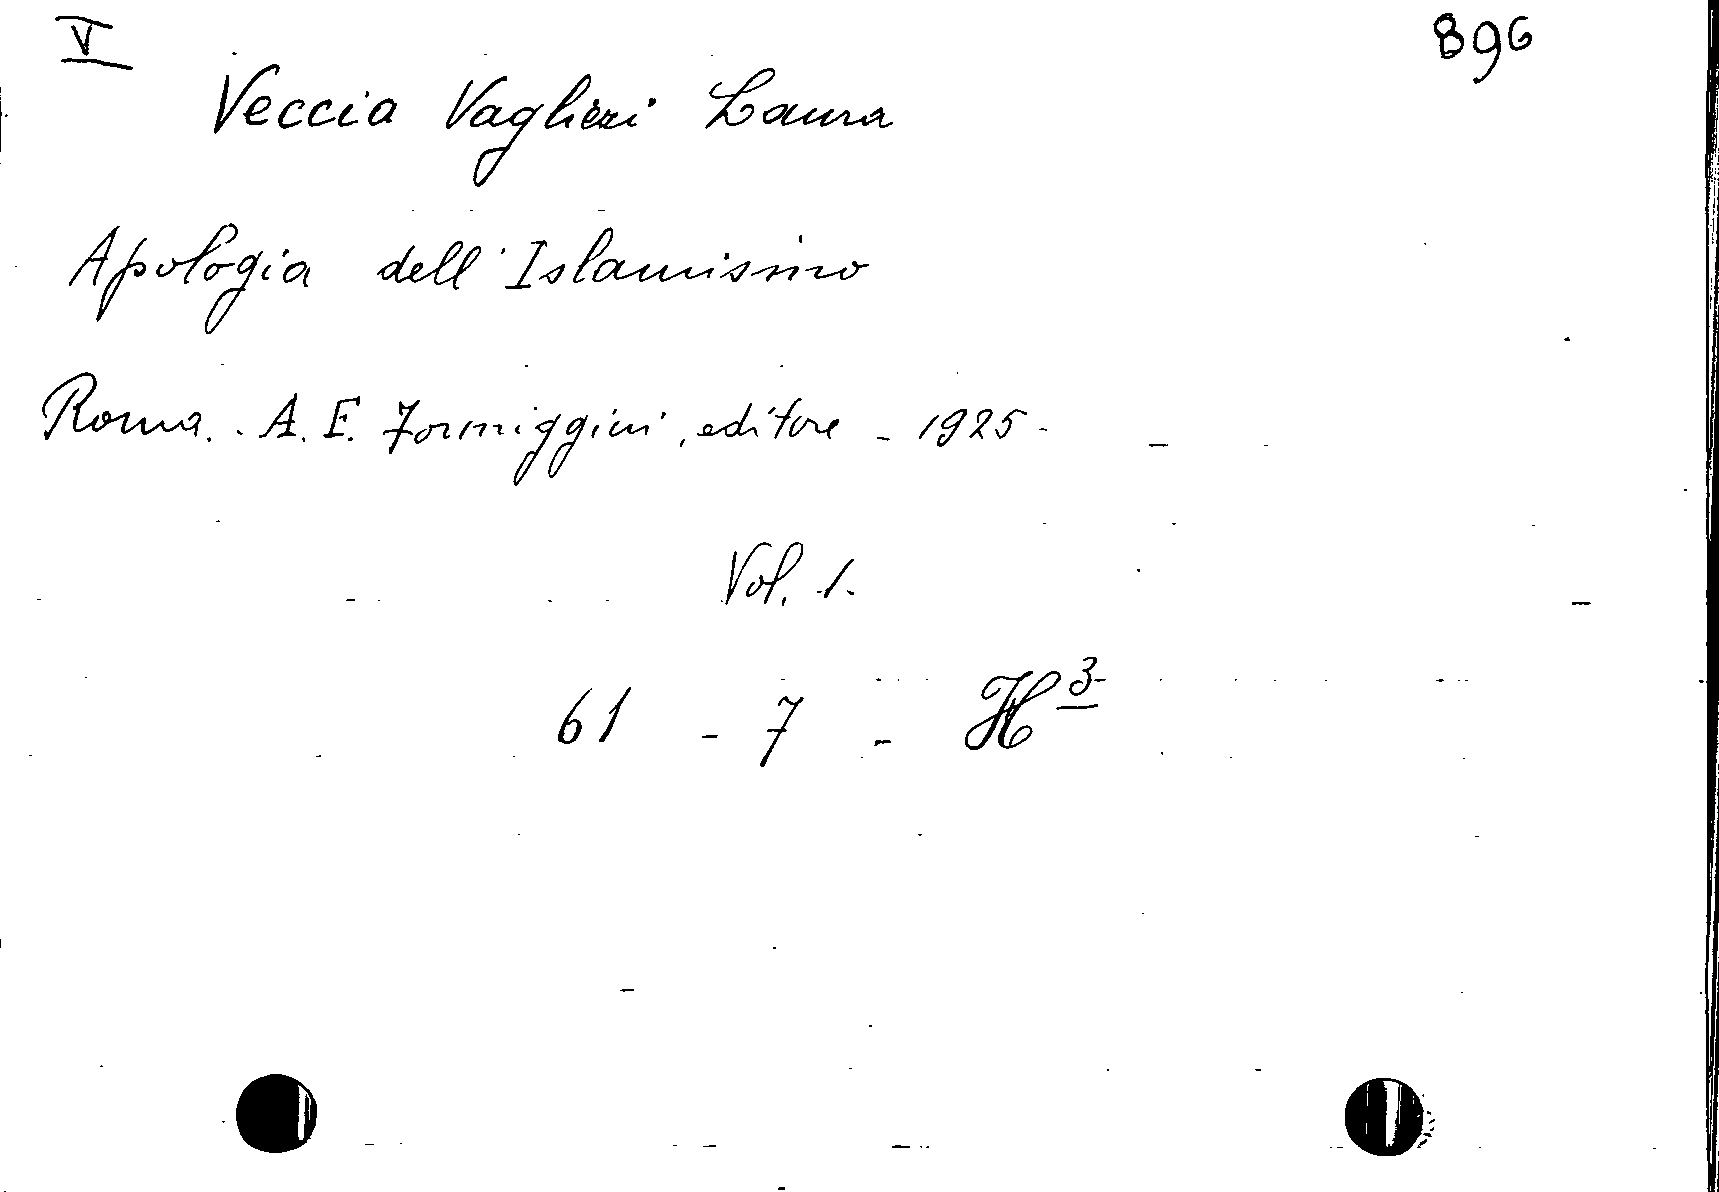 V 896
Veccia Vaglieri Laura
Apologia dell'Islamismo
Roma. A. F. Formiggini, editore - 1925 -
Vol. 1.
61 - 7 - H3